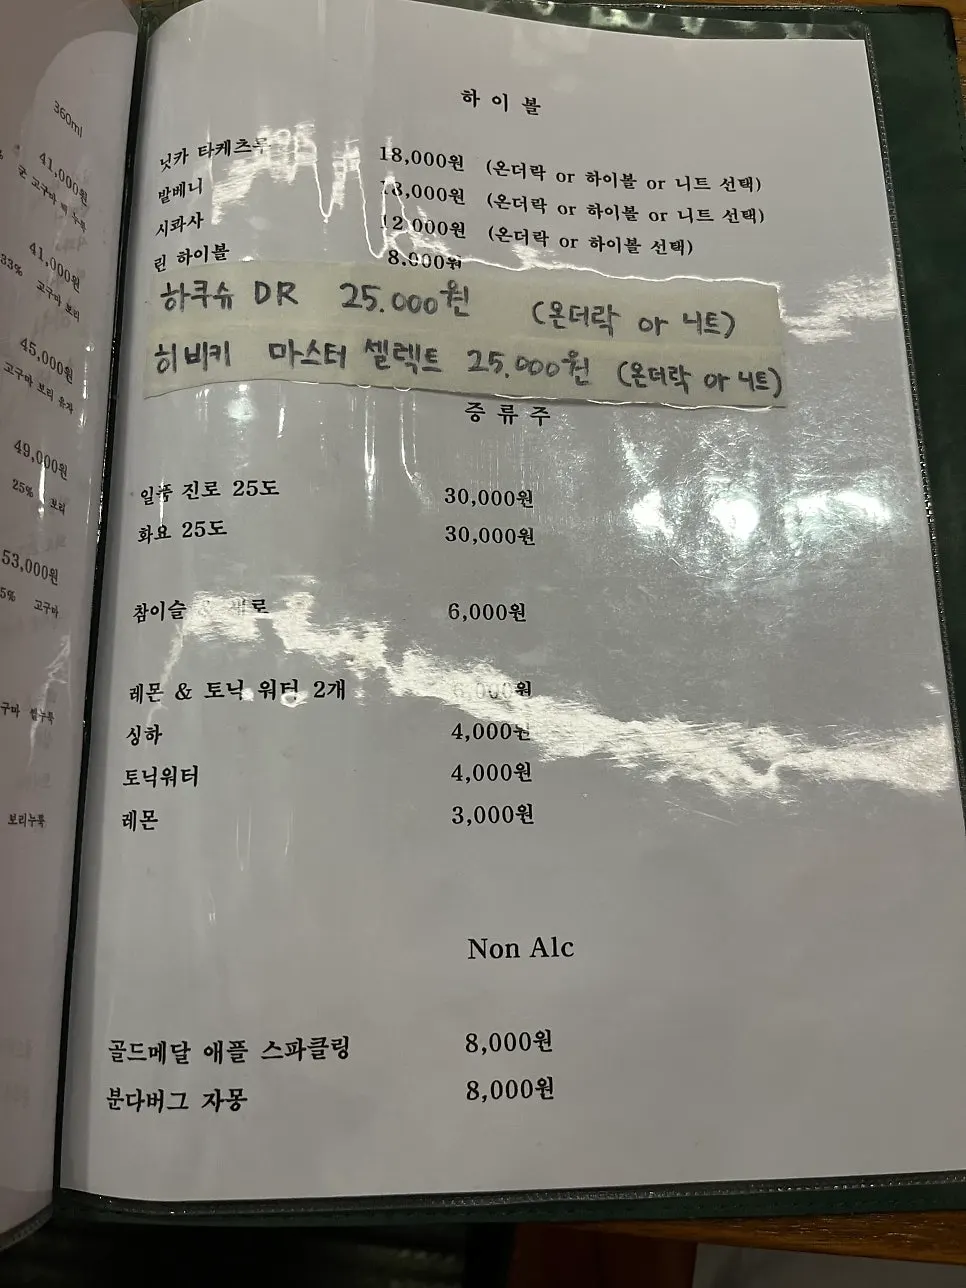 360ml
41,000원
군 고구마 백 누룩
41,000원
33% 고구마 보리
45,000원
고구마 보리 유자
49,000원
25% 보리
53,000원
5% 고구마
고구마 쌀누룩
보리누룩
하이볼
닛카 타케츠루 18,000원 (온더락 or 하이볼 or 니트 선택)
발베니 18,000원 (온더락 or 하이볼 or 니트 선택)
시콰사 12,000원 (온더락 or 하이볼 선택)
린 하이볼 8,000원
하쿠슈 DR 25.000원 (온더락 or 니트)
히비키 마스터 셀렉트 25.000원 (온더락 or 니트)
증류주
일품 진로 25도 30,000원
화요 25도 30,000원
참이슬 6,000원
레몬 & 토닉 워터 2개 6,000원
싱하 4,000원
토닉워터 4,000원
레몬 3,000원
Non Alc
골드메달 애플 스파클링 8,000원
분다버그 자몽 8,000원